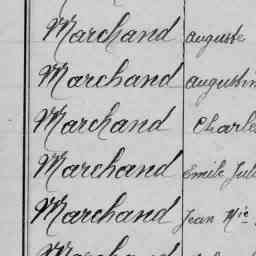 Marchand auguste
Marchand augustin
Marchand Charle
Marchand Emile Jul
Marchand Jean Mie
Marchand